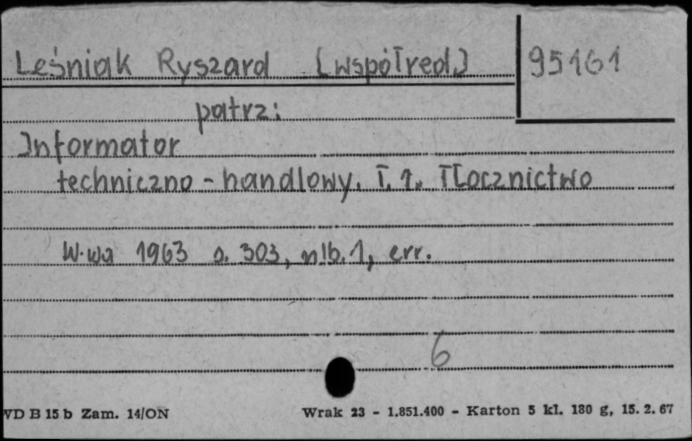 Leśniak Ryszard [współred.]
95161
patrz:
Informator
techniczno-handlowy. T. 1. Tłocznictwo
W-wa 1963 s. 303, nlb. 1, err.
6
VD B 15 b Zam. 14/ON
Wrak 23 - 1.851.400 - Karton 5 kl. 180 g, 15. 2. 67